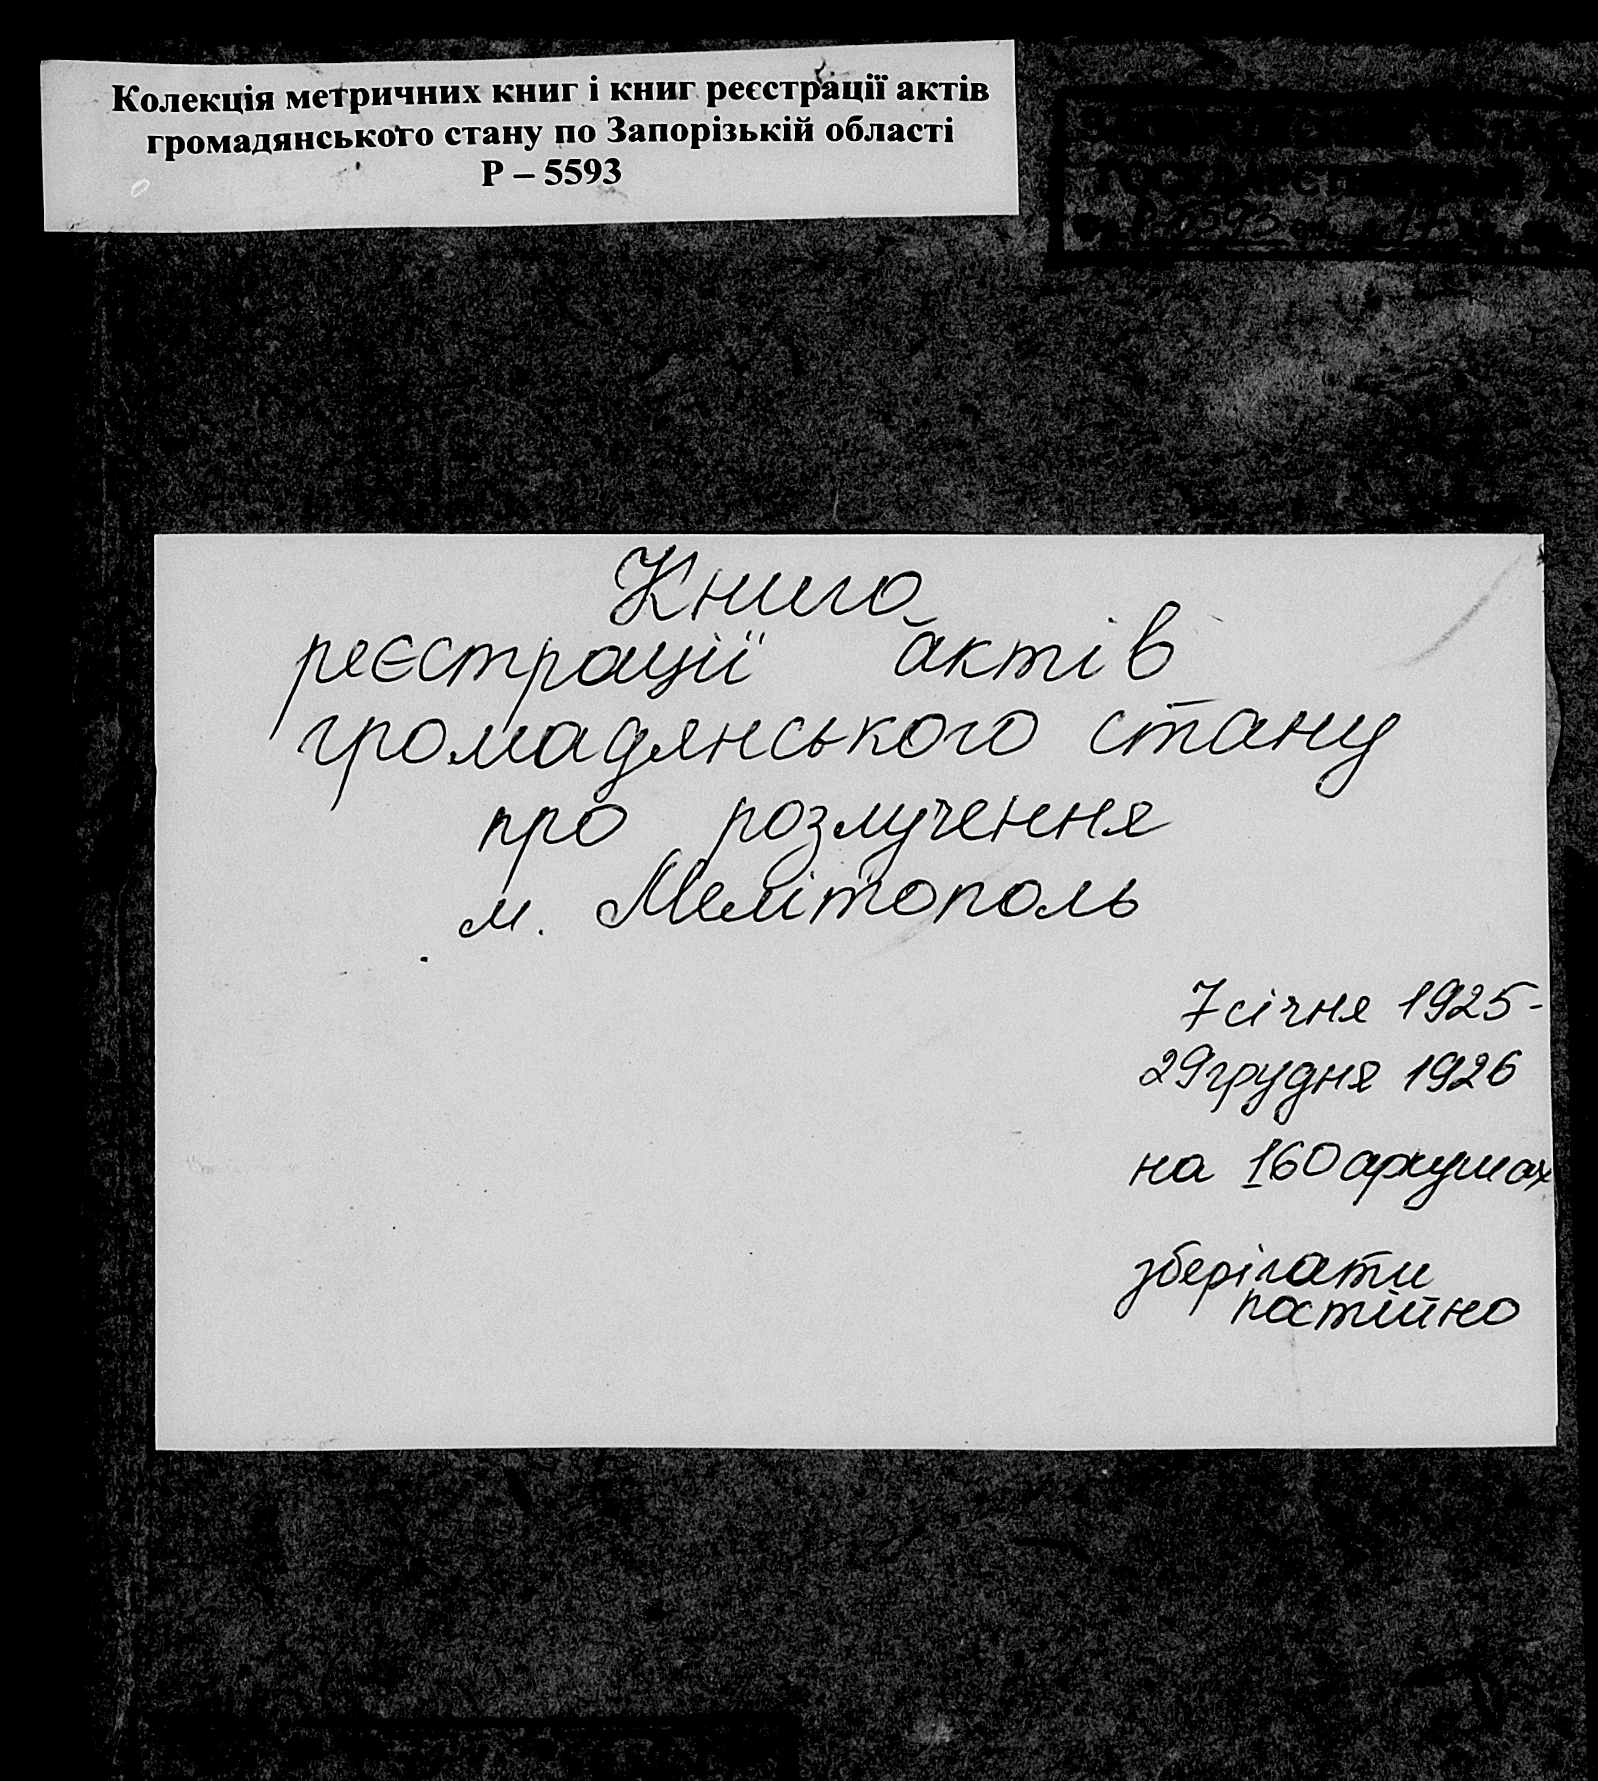 Колекція метричних книг і книг реєстрації актів
громадянського стану по Запорізькій області
Р – 5593
ГОСУДАРСТВЕННЫЙ
Р-5593
Книга
реєстрації актів
громадянського стану
про розлучення
м. Мелітополь
7 січня 1925-
29 грудня 1926
на 160 аркушах
зберігати
постійно